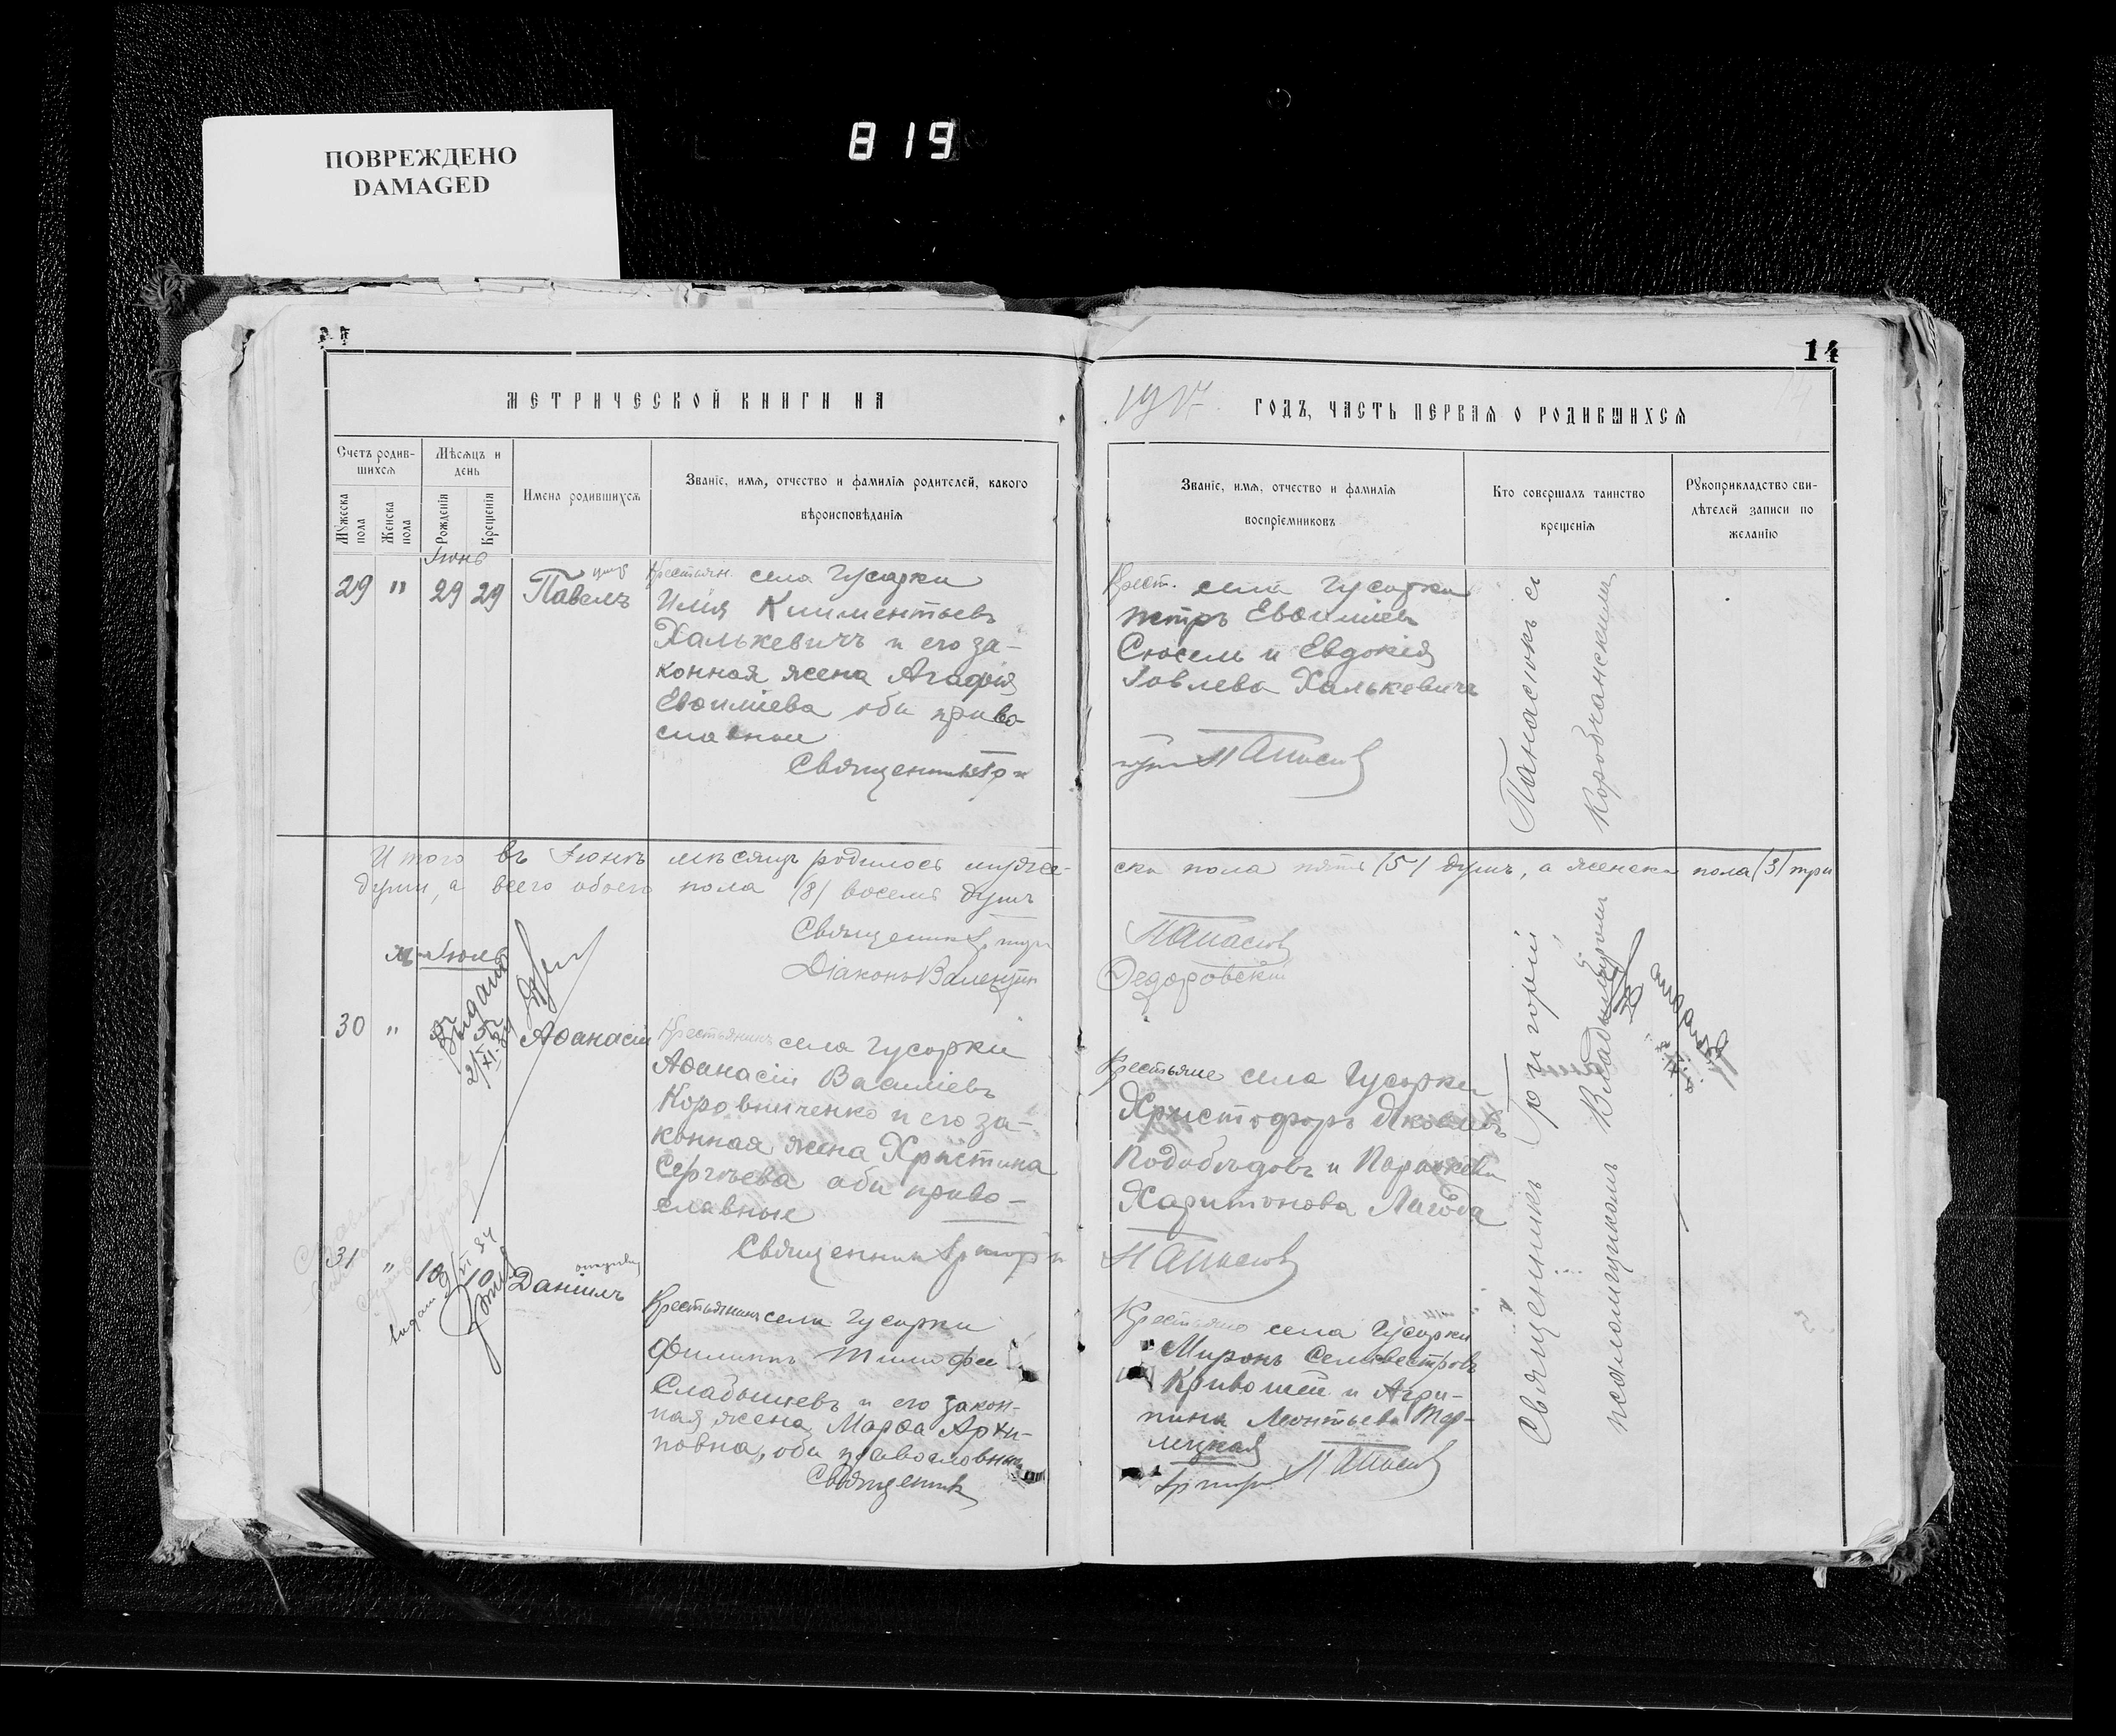 ПОВРЕЖДЕНО
DAMAGED
819
14
МЕТРИЧЕСКОЙ КНИГИ НА
1917 ГОДЪ, ЧАСТЬ ПЕРВАЯ О РОДИВШИХСЯ
Счетъ родив-
шихся
Мужеска
пола
Женска
пола
Мѣсяцъ и
день
Рожденія
Крещенія
Имена родившихся
Званіе, имя, отчество и фамилія родителей, какого
вѣроисповѣданія
Званіе, имя, отчество и фамилія
воспріемниковъ
Кто совершалъ таинство
крещенія
Рукоприкладство сви-
дѣтелей записи по
желанію
Іюнь
29 " 29 29 Павелъ
Крестьян. села Гусарки
Илія Климентьевъ
Халькевичъ и его за-
конная жена Агафія
Евѳиміева оба право-
славные
Священникъ
Крест. села Гусарки
Петръ Евѳиміевъ
Сюсель и Евдокія
Іовлева Халькевичъ
Итого въ Іюнѣ мѣсяцѣ родилось мужес-
ска пола пять (5) душъ, а женска пола (3) три
души, а всего обоего пола (8) восемь душъ
Священникъ
Діаконъ Валентин
Федоровскій
Іюль
30 " Аѳанасій
Крестьянинъ села Гусарки
Аѳанасій Василіевъ
Коровниченко и его за-
конная жена Христина
Сергѣева оба право-
славные
Священник
Крестьяне села Гусарки
Христофоръ Яковлевъ
Подобѣдовъ и Параскева
Харитонова Лагода
31 " 10 10 Даніилъ
Крестьянинъ села Гусарки
Филиппъ Тимофе
Слабышевъ и его закон-
ная жена Марѳа Архи-
повна, оба православные
Священникъ
Крестьяне села Гусарки
Миронъ Селивестровъ
Кривошей и Агри-
пина Леонтьева Тер-
лецкая
Священникъ Григорій Панасюкъ съ
псаломщикомъ Владиміромъ Коробчанскимъ